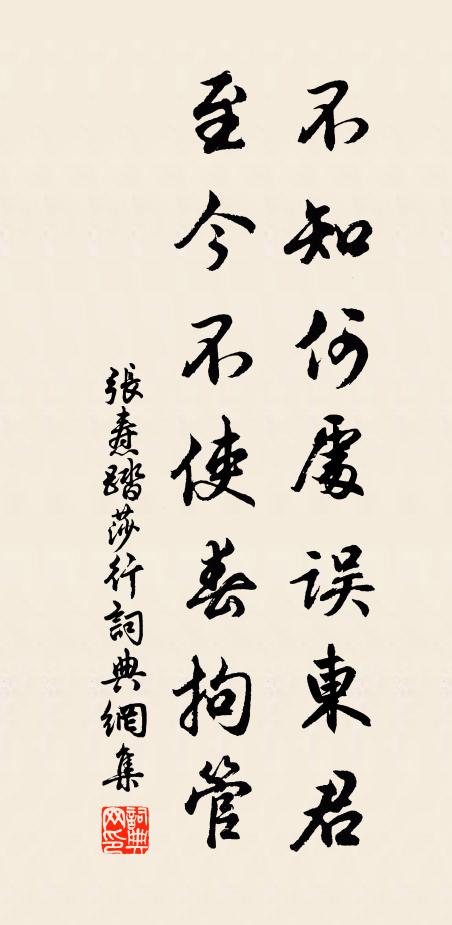 不知何處誤東君
至今不使春拘管
張燾踏莎行詞典網集
詞典网印